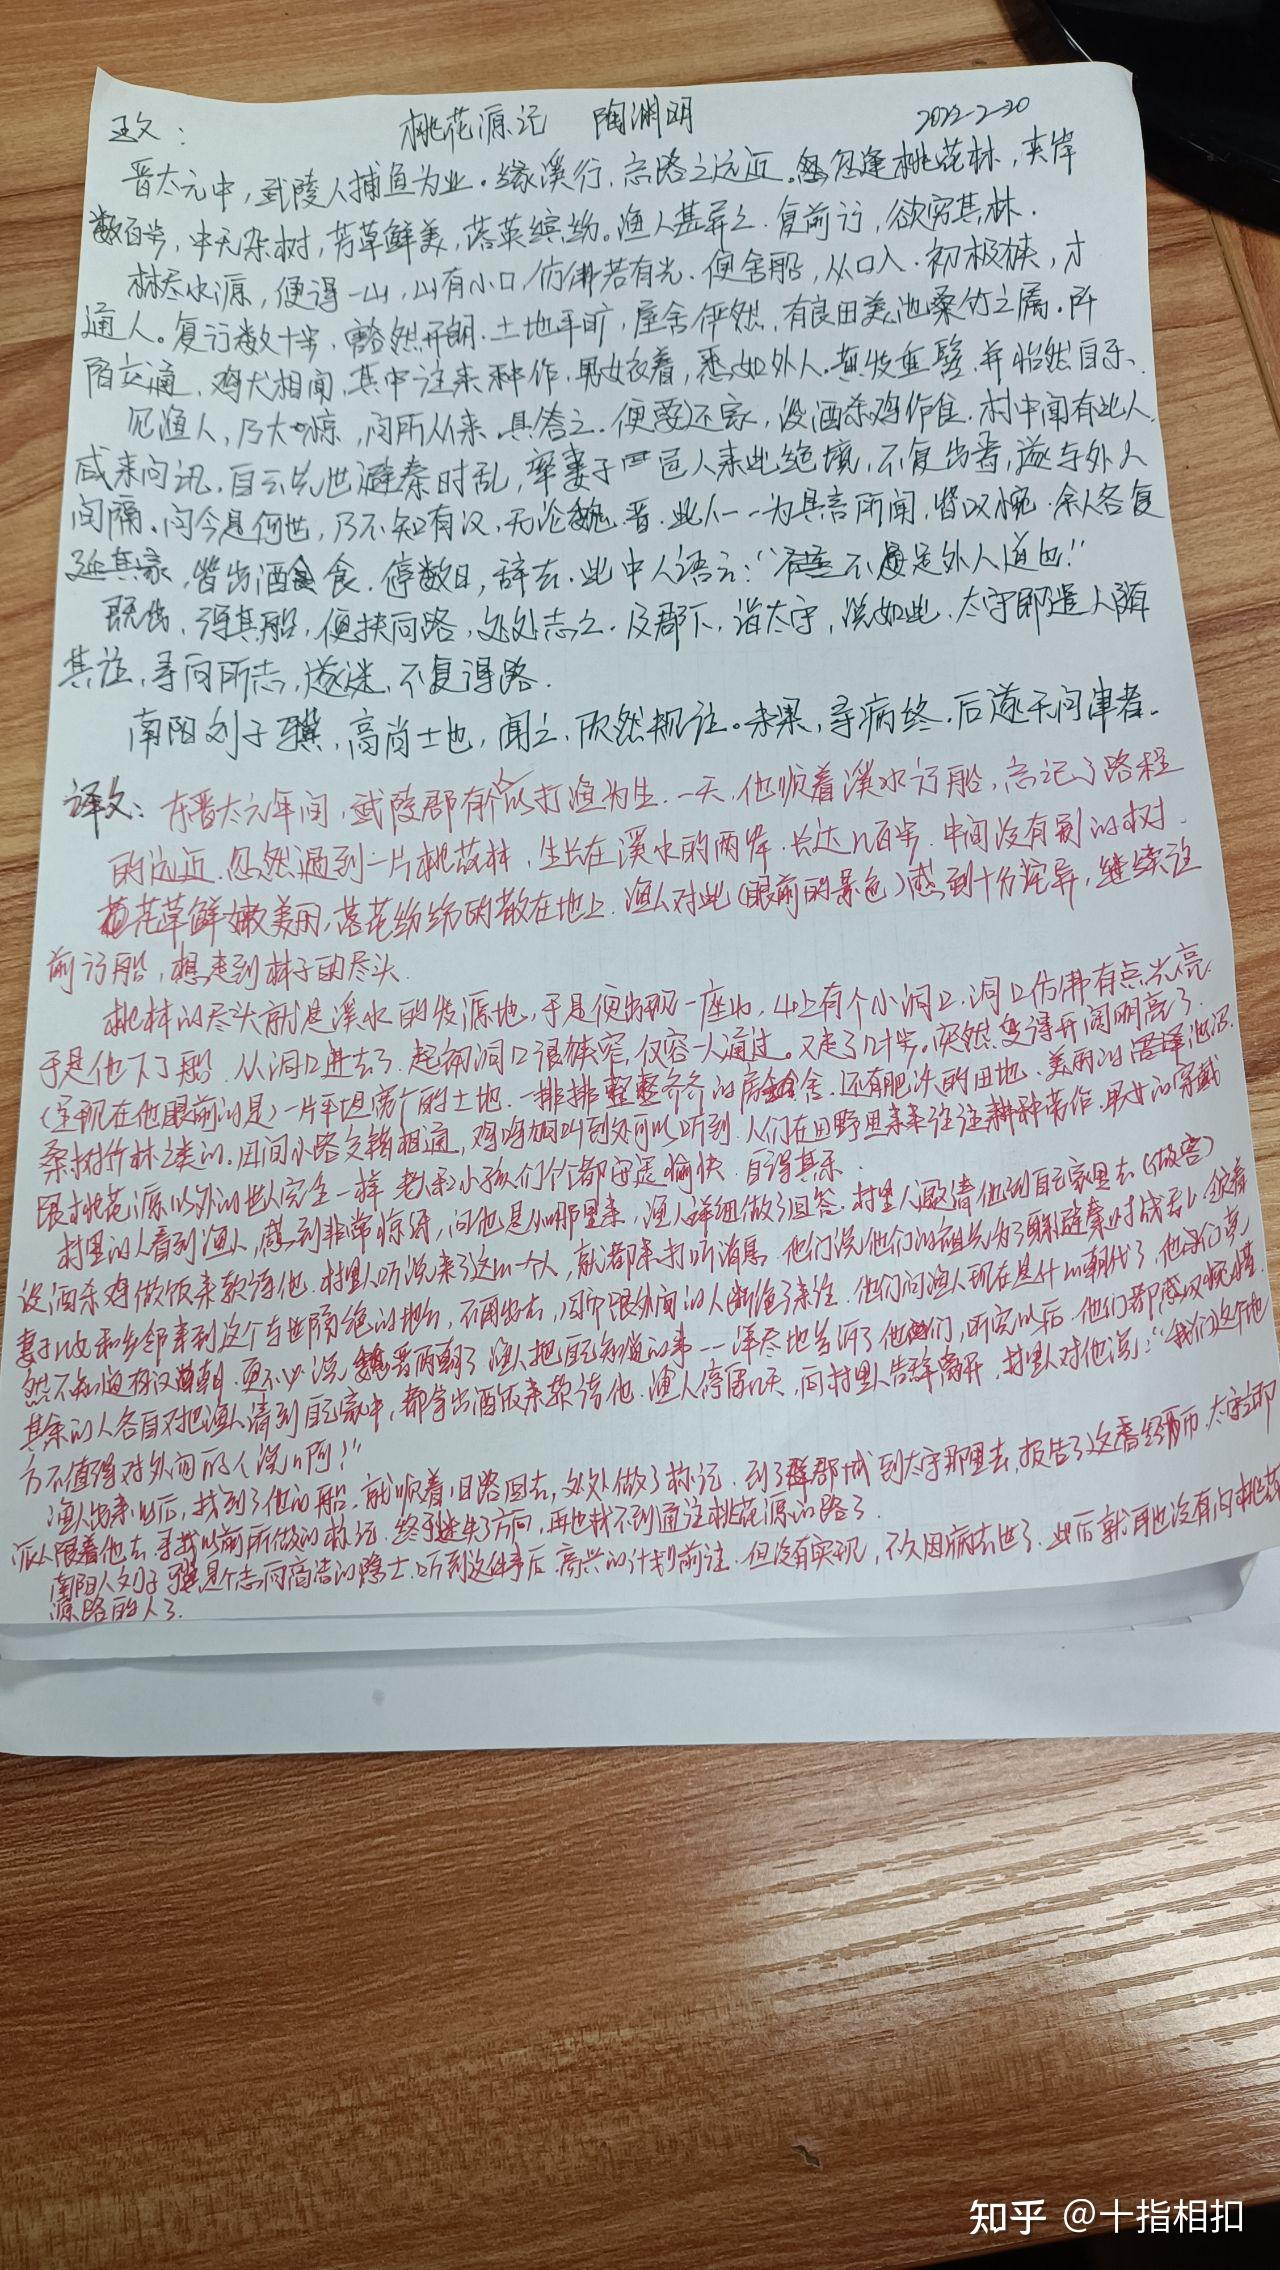 桃花源记 陶渊明 2022-2-20
晋太元中，武陵人捕鱼为业。缘溪行，忘路之远近。忽逢桃花林，夹岸
数百步，中无杂树，芳草鲜美，落英缤纷。渔人甚异之．复前行，欲穷其林．
林尽水源，便得一山，山有小口，仿佛若有光．便舍船，从口入．初极狭，才
通人。复行数十步，豁然开朗．土地平旷，屋舍俨然，有良田美池桑竹之属。阡
陌交通，鸡犬相闻，其中往来种作，男女衣着，悉如外人．黄发垂髫，并怡然自乐、
见渔人，乃大惊，问所从来．具答之．便要还家，设酒杀鸡作食．村中闻有此人，
咸来问讯．自云先世避秦时乱，率妻子邑人来此绝境，不复出焉，遂与外人
间隔．问今是何世，乃不知有汉，无论魏晋．此人一一为具言所闻，皆叹惋．余人各复
延其家，皆出酒食．停数日，辞去．此中人语云：“不足外人道也！”
既出，得其船，便扶向路，处处志之．及郡下，诣太守，说如此．太守即遣人随
其往，寻向所志，遂迷，不复得路．
南阳刘子骥，高尚士也，闻之，欣然规往。未果，寻病终．后遂无问津者。
译文：东晋太元年间，武陵郡有个人以打渔为生．一天，他顺着溪水行船，忘记了路程
的远近．忽然遇到一片桃花林，生长在溪水的两岸．长达几百步．中间没有别的树．
花草鲜嫩美丽，落花纷纷的散在地上．渔人对此（眼前的景色）感到十分诧异，继续往
前行船，想走到林子的尽头．
桃林的尽头就是溪水的发源地，于是便出现一座山，山上有个小洞口．洞口仿佛有点光亮．
于是他下了船．从洞口进去了．起初洞口很狭窄，仅容一人通过。又走了几十步。突然变得开阔明亮了．
（呈现在他眼前的是）一片平坦宽广的土地．一排排整整齐齐的房舍．还有肥沃的田地．美丽的池沼．
桑树竹林之类的．田间小路交错相通，鸡鸣狗叫到处可以听到．人们在田野里来来往往耕种劳作．男女的穿戴
跟桃花源以外的世人完全一样．老人和小孩们个个都安适愉快．自得其乐．
村里的人看到渔人，感到非常惊讶，问他是从哪里来，渔人详细做了回答．村里人邀请他到自己家里去（做客）
设酒杀鸡做饭来款待他．村里人听说来了这么一个人，就都来打听消息．他们说他们的祖先为了躲避秦时战乱，领着
妻子儿女和乡邻来到这个与世隔绝的地方，不再出去，因而跟外面的人断绝了来往．他们问渔人现在是什么朝代了，他们竟
然不知道有汉朝．更不必说魏晋两朝了．渔人把自己知道的事一一详尽地告诉了他们，听完以后．他们都感叹惋惜．
其余的人各自把渔人请到自己家中，都拿出酒饭来款待他．渔人停留几天，向村里人告辞离开，村里人对他说：“我们这个地
方不值得对外面的人说啊！”
渔人出来以后，找到了他的船．就顺着旧路回去，处处做了标记．到了郡城到太守那里去，报告了这番经历．太守立即
派人跟着他去．寻找以前所做的标记．终于迷失了方向，再也找不到通往桃花源的路了．
南阳人刘子骥是个志向高洁的隐士．听到这件事后．高兴的计划前往．但没有实现，不久因病去世了．此后就再也没有问桃花
源路的人了．
知乎 @十指相扣